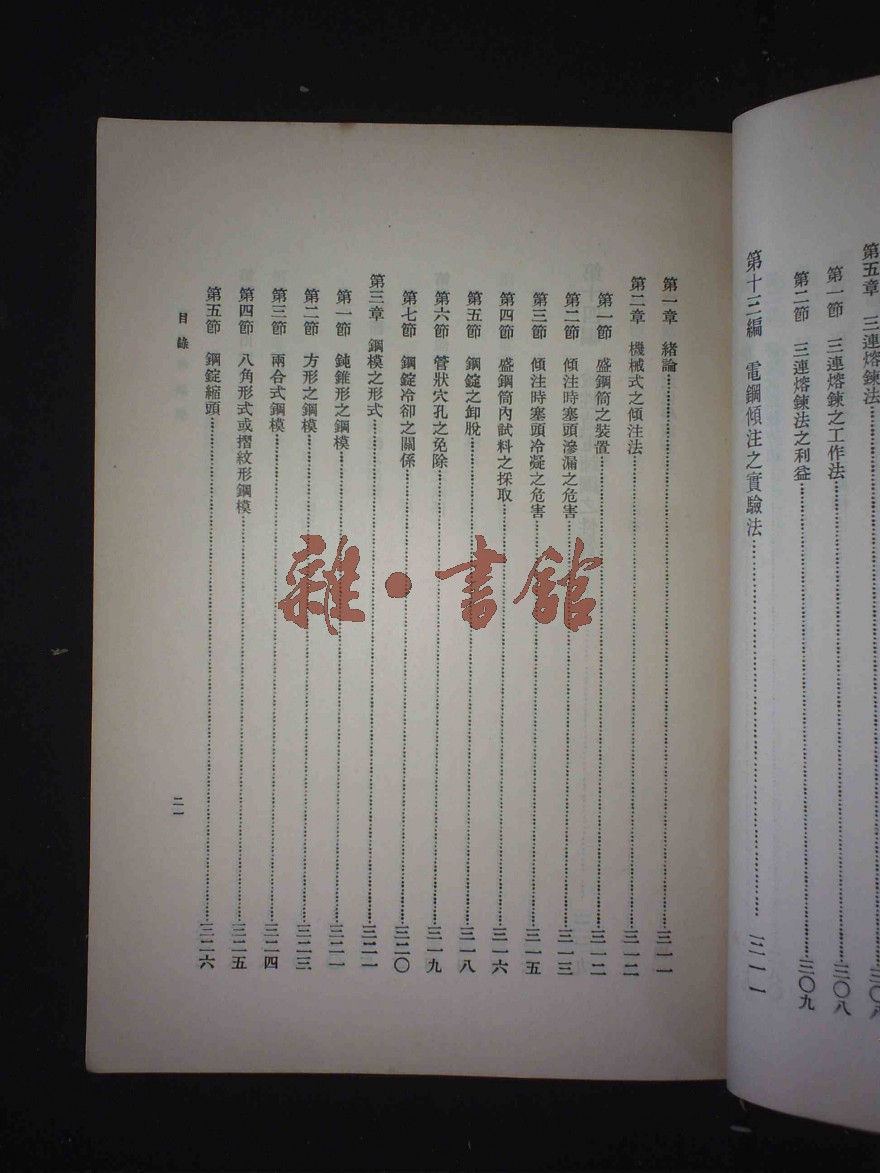 第五章 三連熔鍊法 三〇八
第一節 三連熔鍊之工作法 三〇八
第二節 三連熔鍊法之利益 三〇九
第十三編 電鋼傾注之實驗法 三一一
第一章 緒論 三一一
第二章 機械式之傾注法 三一二
第一節 盛鋼筒之裝置 三一二
第二節 傾注時塞頭滲漏之危害 三一三
第三節 傾注時塞頭冷凝之危害 三一五
第四節 盛鋼筒內試料之採取 三一六
第五節 鋼錠之卸脫 三一八
第六節 管狀穴孔之免除 三一九
第七節 鋼錠冷卻之關係 三二〇
第三章 鋼模之形式 三二一
第一節 鈍錐形之鋼模 三二一
第二節 方形之鋼模 三二三
第三節 兩合式鋼模 三二四
第四節 八角形式或摺紋形鋼模 三二五
第五節 鋼錠縮頭 三二六
目錄
二一
雜·書館